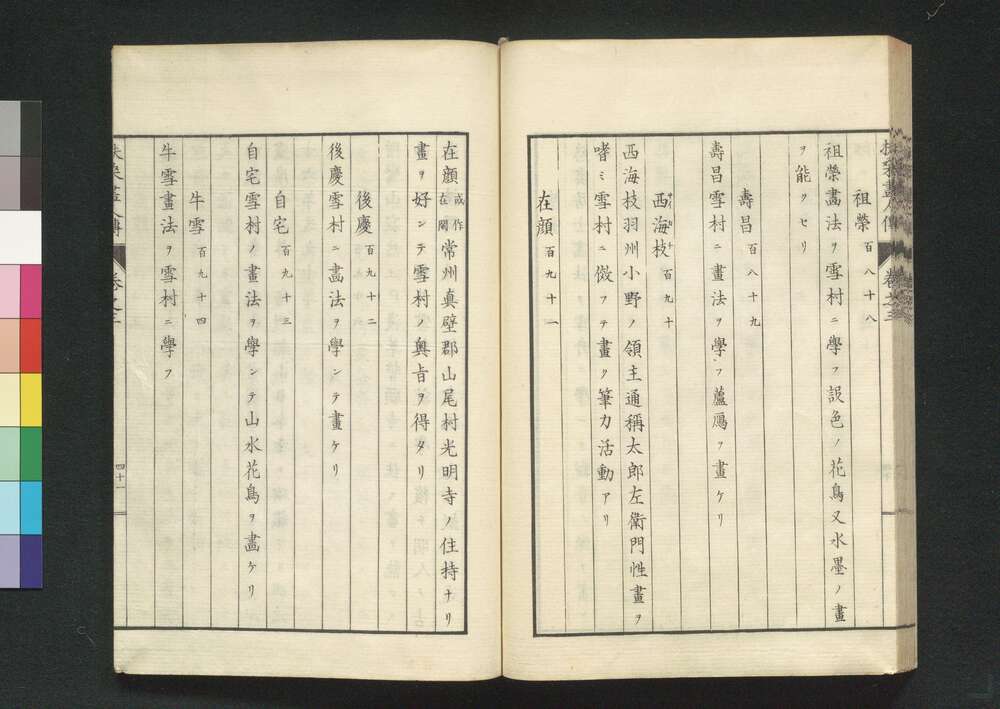 扶桑畫人傳 卷之三
祖榮 百八十八
祖榮畵法ヲ雪村ニ學フ設色ノ花鳥又水墨ノ畫
ヲ能クセリ
壽昌 百八十九
壽昌雪村ニ畫法ヲ學フ蘆鴈ヲ畫ケリ
西海枝 百九十
西海枝羽州小野ノ領主通稱太郎左衞門性畫ヲ
嗜ミ雪村ニ倣フテ畫ク筆力活動アリ
在顔 百九十一
在顔 或作在閑 常州真壁郡山尾村光明寺ノ住持ナリ
畫ヲ好ンテ雪村ノ奥旨ヲ得タリ
後慶 百九十二
後慶雪村ニ畵法ヲ學ンテ畫ケリ
自宅 百九十三
自宅雪村ノ畫法ヲ學ンテ山水花鳥ヲ畵ケリ
牛雪 百九十四
牛雪畫法ヲ雪村ニ學フ
卷之三
四十一